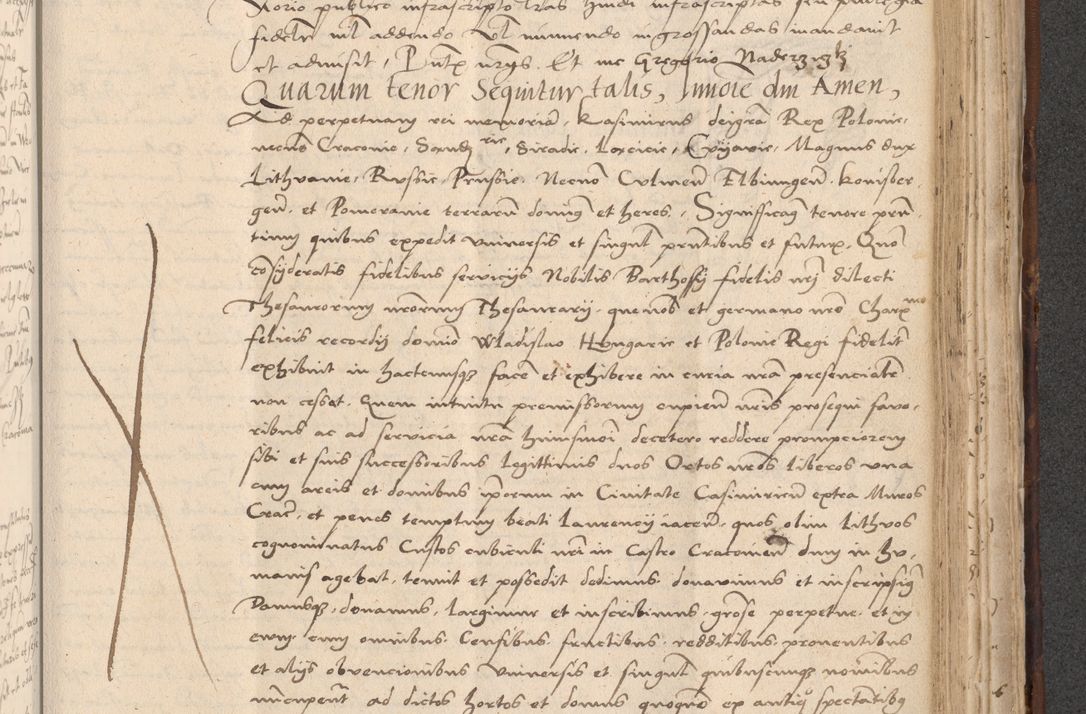 Norio publico infrascripto lr̃as hmõi infrascriptas seu priuilegia
fidelr̃ nil addendo vl̃ minuendo ingrossandas mandauit
et admisit, Pn̄tꝫ nr̄ijs. Et me Gregorio
Quarum tenor Sequitur talis, Innoīe dm̄ Amen,
Ad perpetuam rei memoriā, Kasimirus deigrā Rex Polonie,
necnō Craconie, Sandꝫ rie, Siradie, Lancicie, Cuijauie, Magnus dux
Lithuanie, Russie, Prussie, Necnō Culmen̄ Elbingen̄. konisber
gen̄. et Pomeranie terrarū domin9 et heres, Significam9 tenore prn̄
tium quibus expedit vniuersis et singul̄ prn̄tibus et futuꝝ, Quō
cōsyderatis fidelibus seruicijs Nobilis Barthosij fidelis nr̄j dilecti
Thesaurorum nr̄orum Thesaurarij, que nōs et germano nr̄o Charꝫmo
felicis recordij domīo Wladislao Hungarie et Polonie Regi fidelit̄
exhibuit in hactenusqꝫ facē et exhibere in curia nr̄a presencialit̄
non cessat. Quem intuitu premissorum cupien̄ nr̄is prosequi fauo,
ribus ac ad seruicia nr̄a huiusmōi decetero reddere prompciorem
sibi et suis successoribus legittimis duos Ortos nr̄os liberos vna
cum areis et domibus ip̄orum in Ciuitate Casimirien̄ extra Muros
Crac̄, et penes templum beati Laurencij iacen̄. quos olim Lithuos
cognominatus Custos cubiculi nr̄i in Castro Cracouien̄ dum in hu,
manis agebat, tenuit et possedit dedimus donauimus et inscripsim9
Damusqꝫ, donamus, largimur et inscribimus, grōse perpetue, et in
euum cum omnibus Censibus fructibus, redditibus prouentibus
et alijs obuencionibus vniuersis et singul̄ quibuscunqꝫ nominibus
nūcupent̄ ad dictos hortos et domus quoquō ex antiq̊ spectatibꝫ